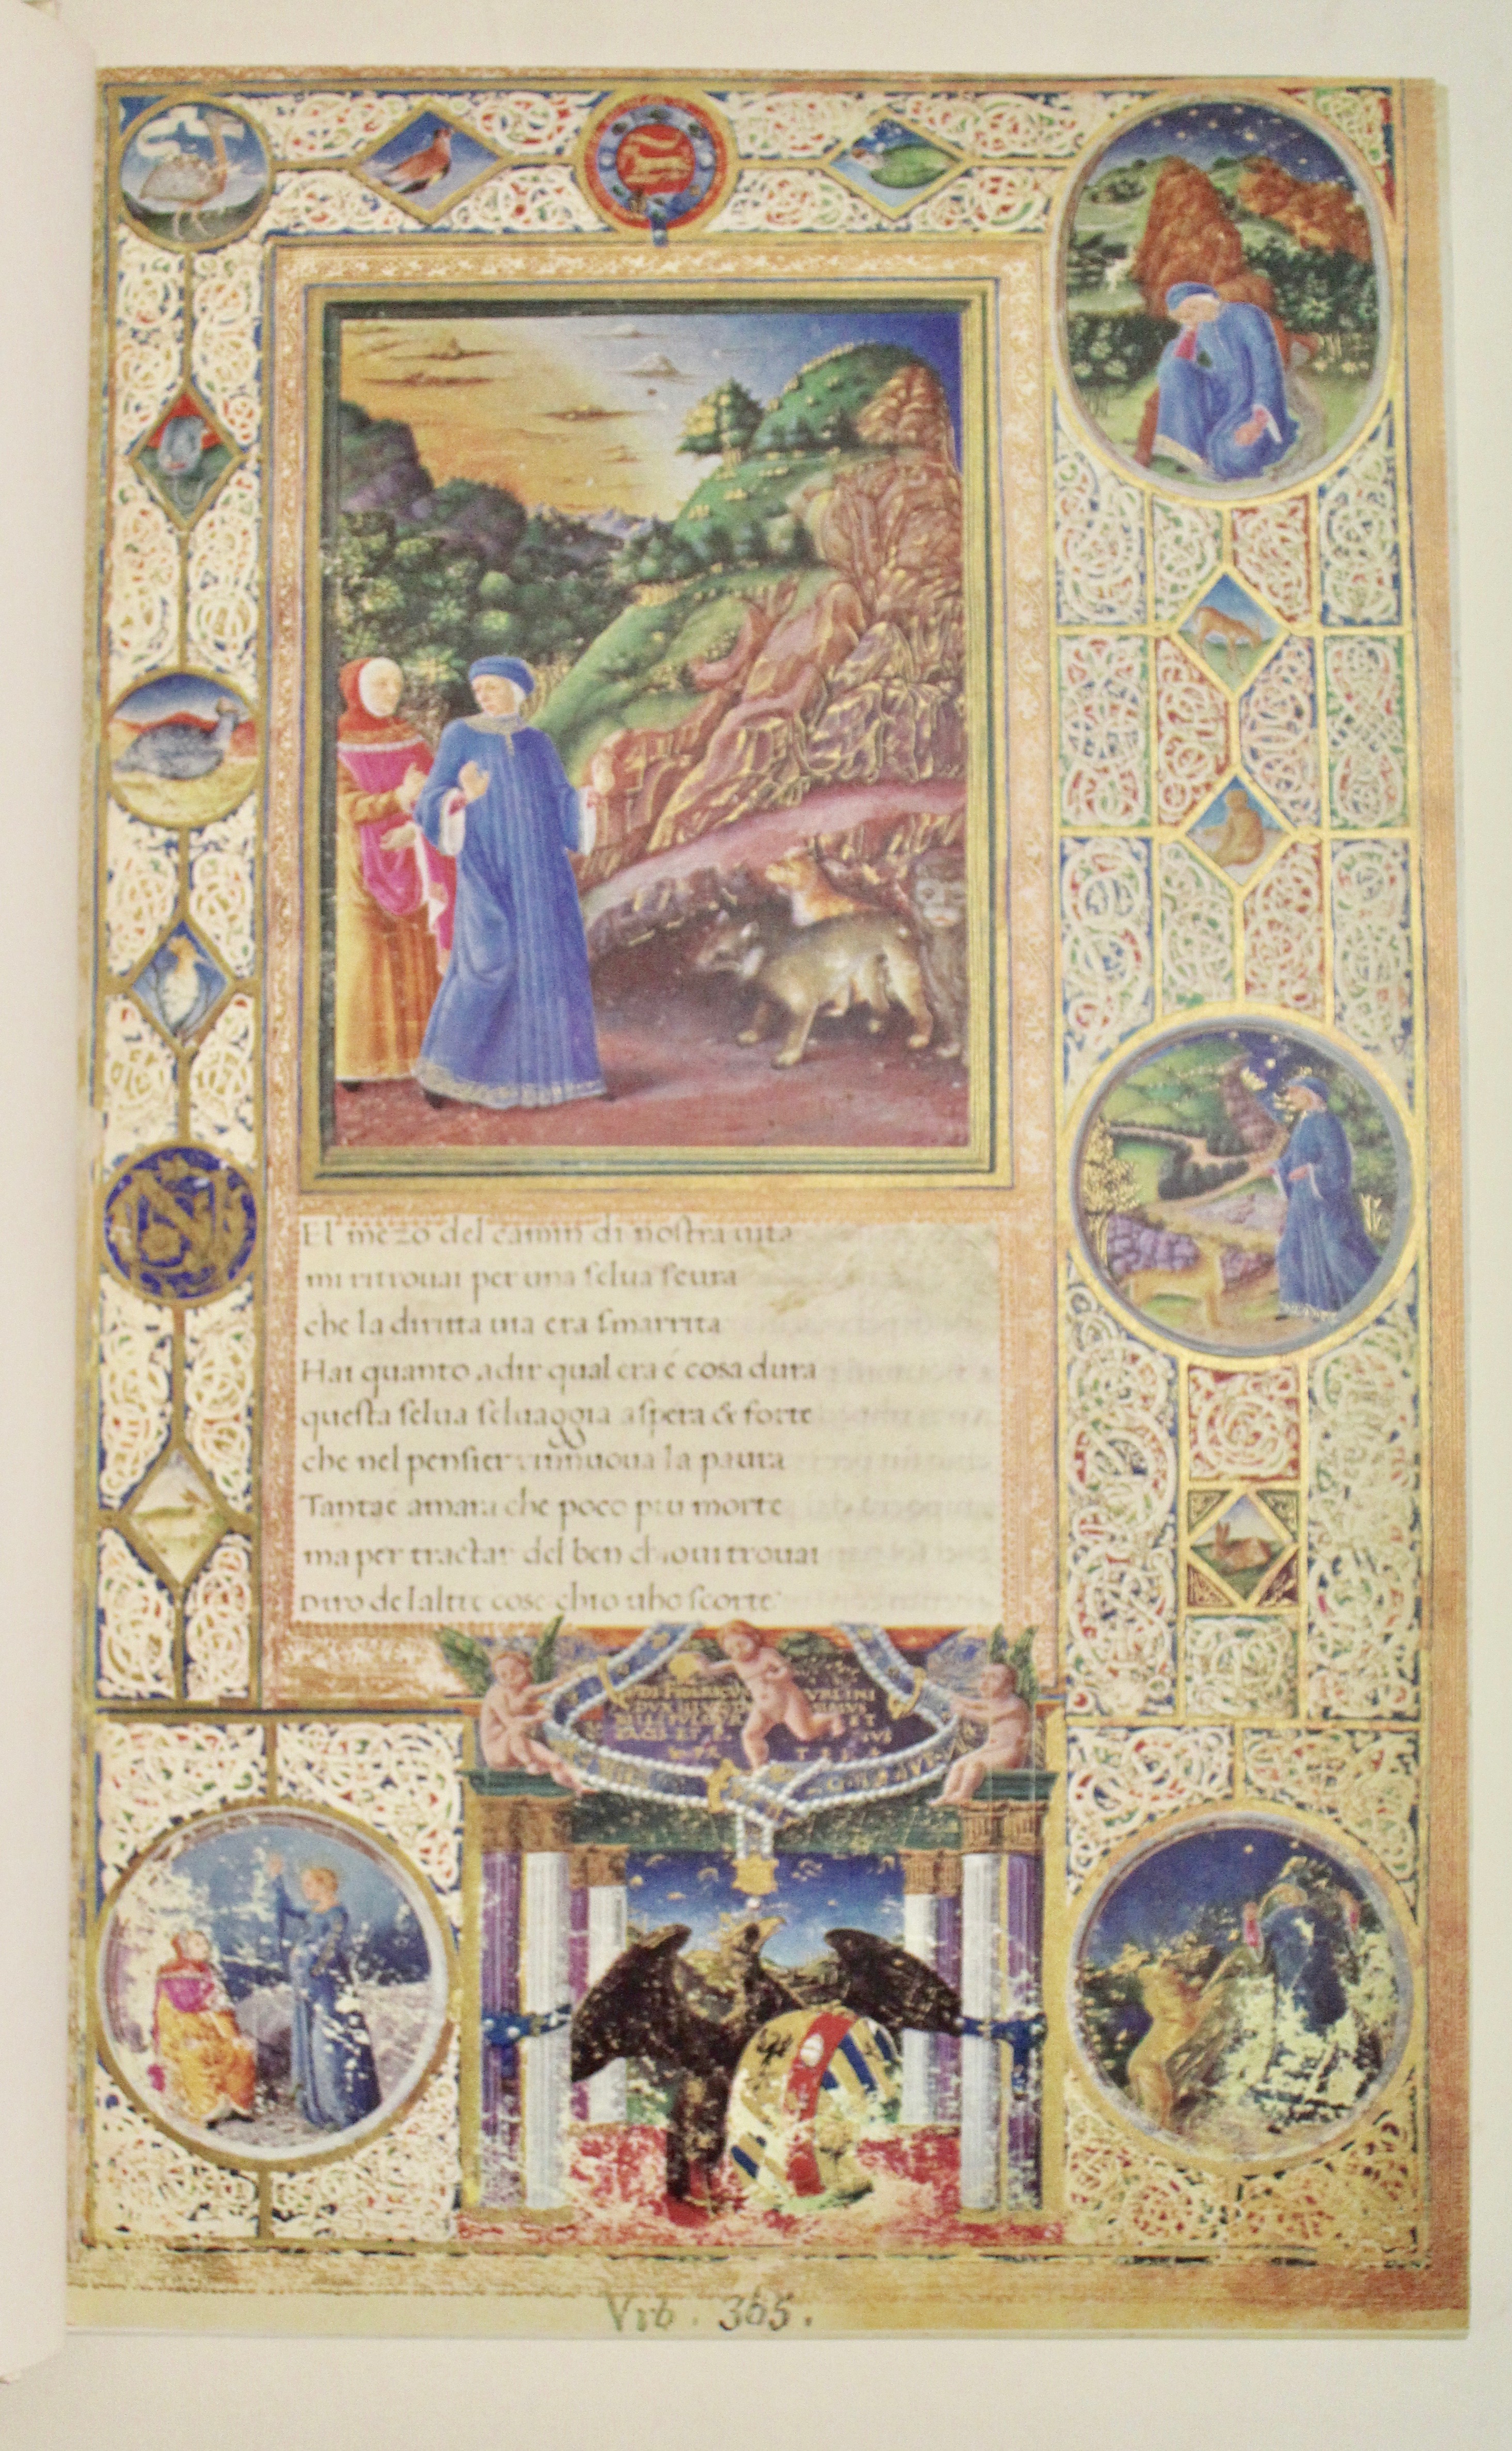 El mezo del camin di nostra uita
mi ritrouai per una selua scura
che la diritta uia era smarrita
Hai quanto adir qual era é cosa dura
questa selua seluaggia aspera & forte
che nel pensier rinnuoua la paura
Tantaé amara che poco piu morte
ma per tractar del ben chioui trouai
diro delaltre cose chio uho scorte
Vrb. 365.